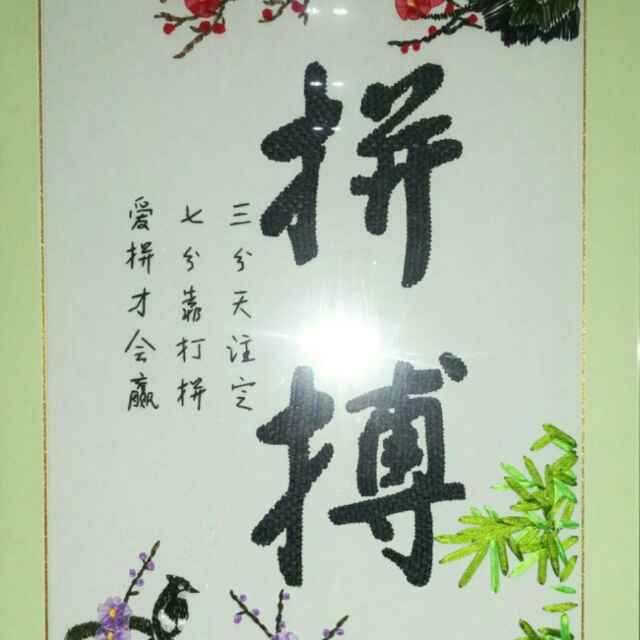 拼搏
三分天注定
七分靠打拼
爱拼才会赢